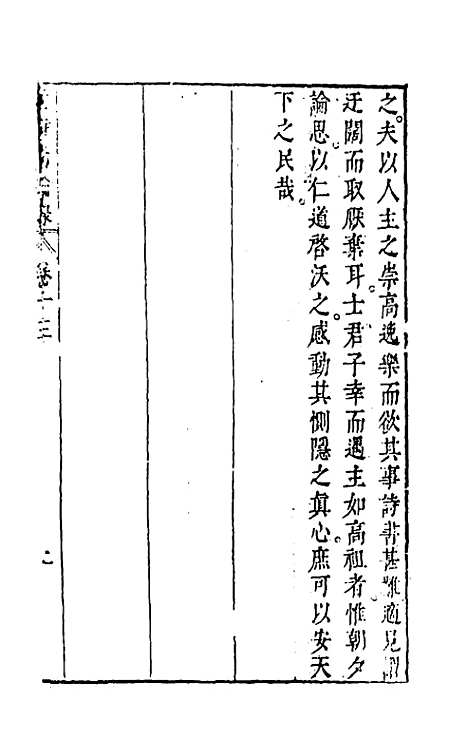 之夫以人主之崇高逸樂而欲其事詩書甚難適見
迂闊而取厭棄耳士君子幸而遇主如高祖者惟朝夕
論思以仁道啓沃之感動其惻隱之真心庶可以安天
下之民哉
卷十三